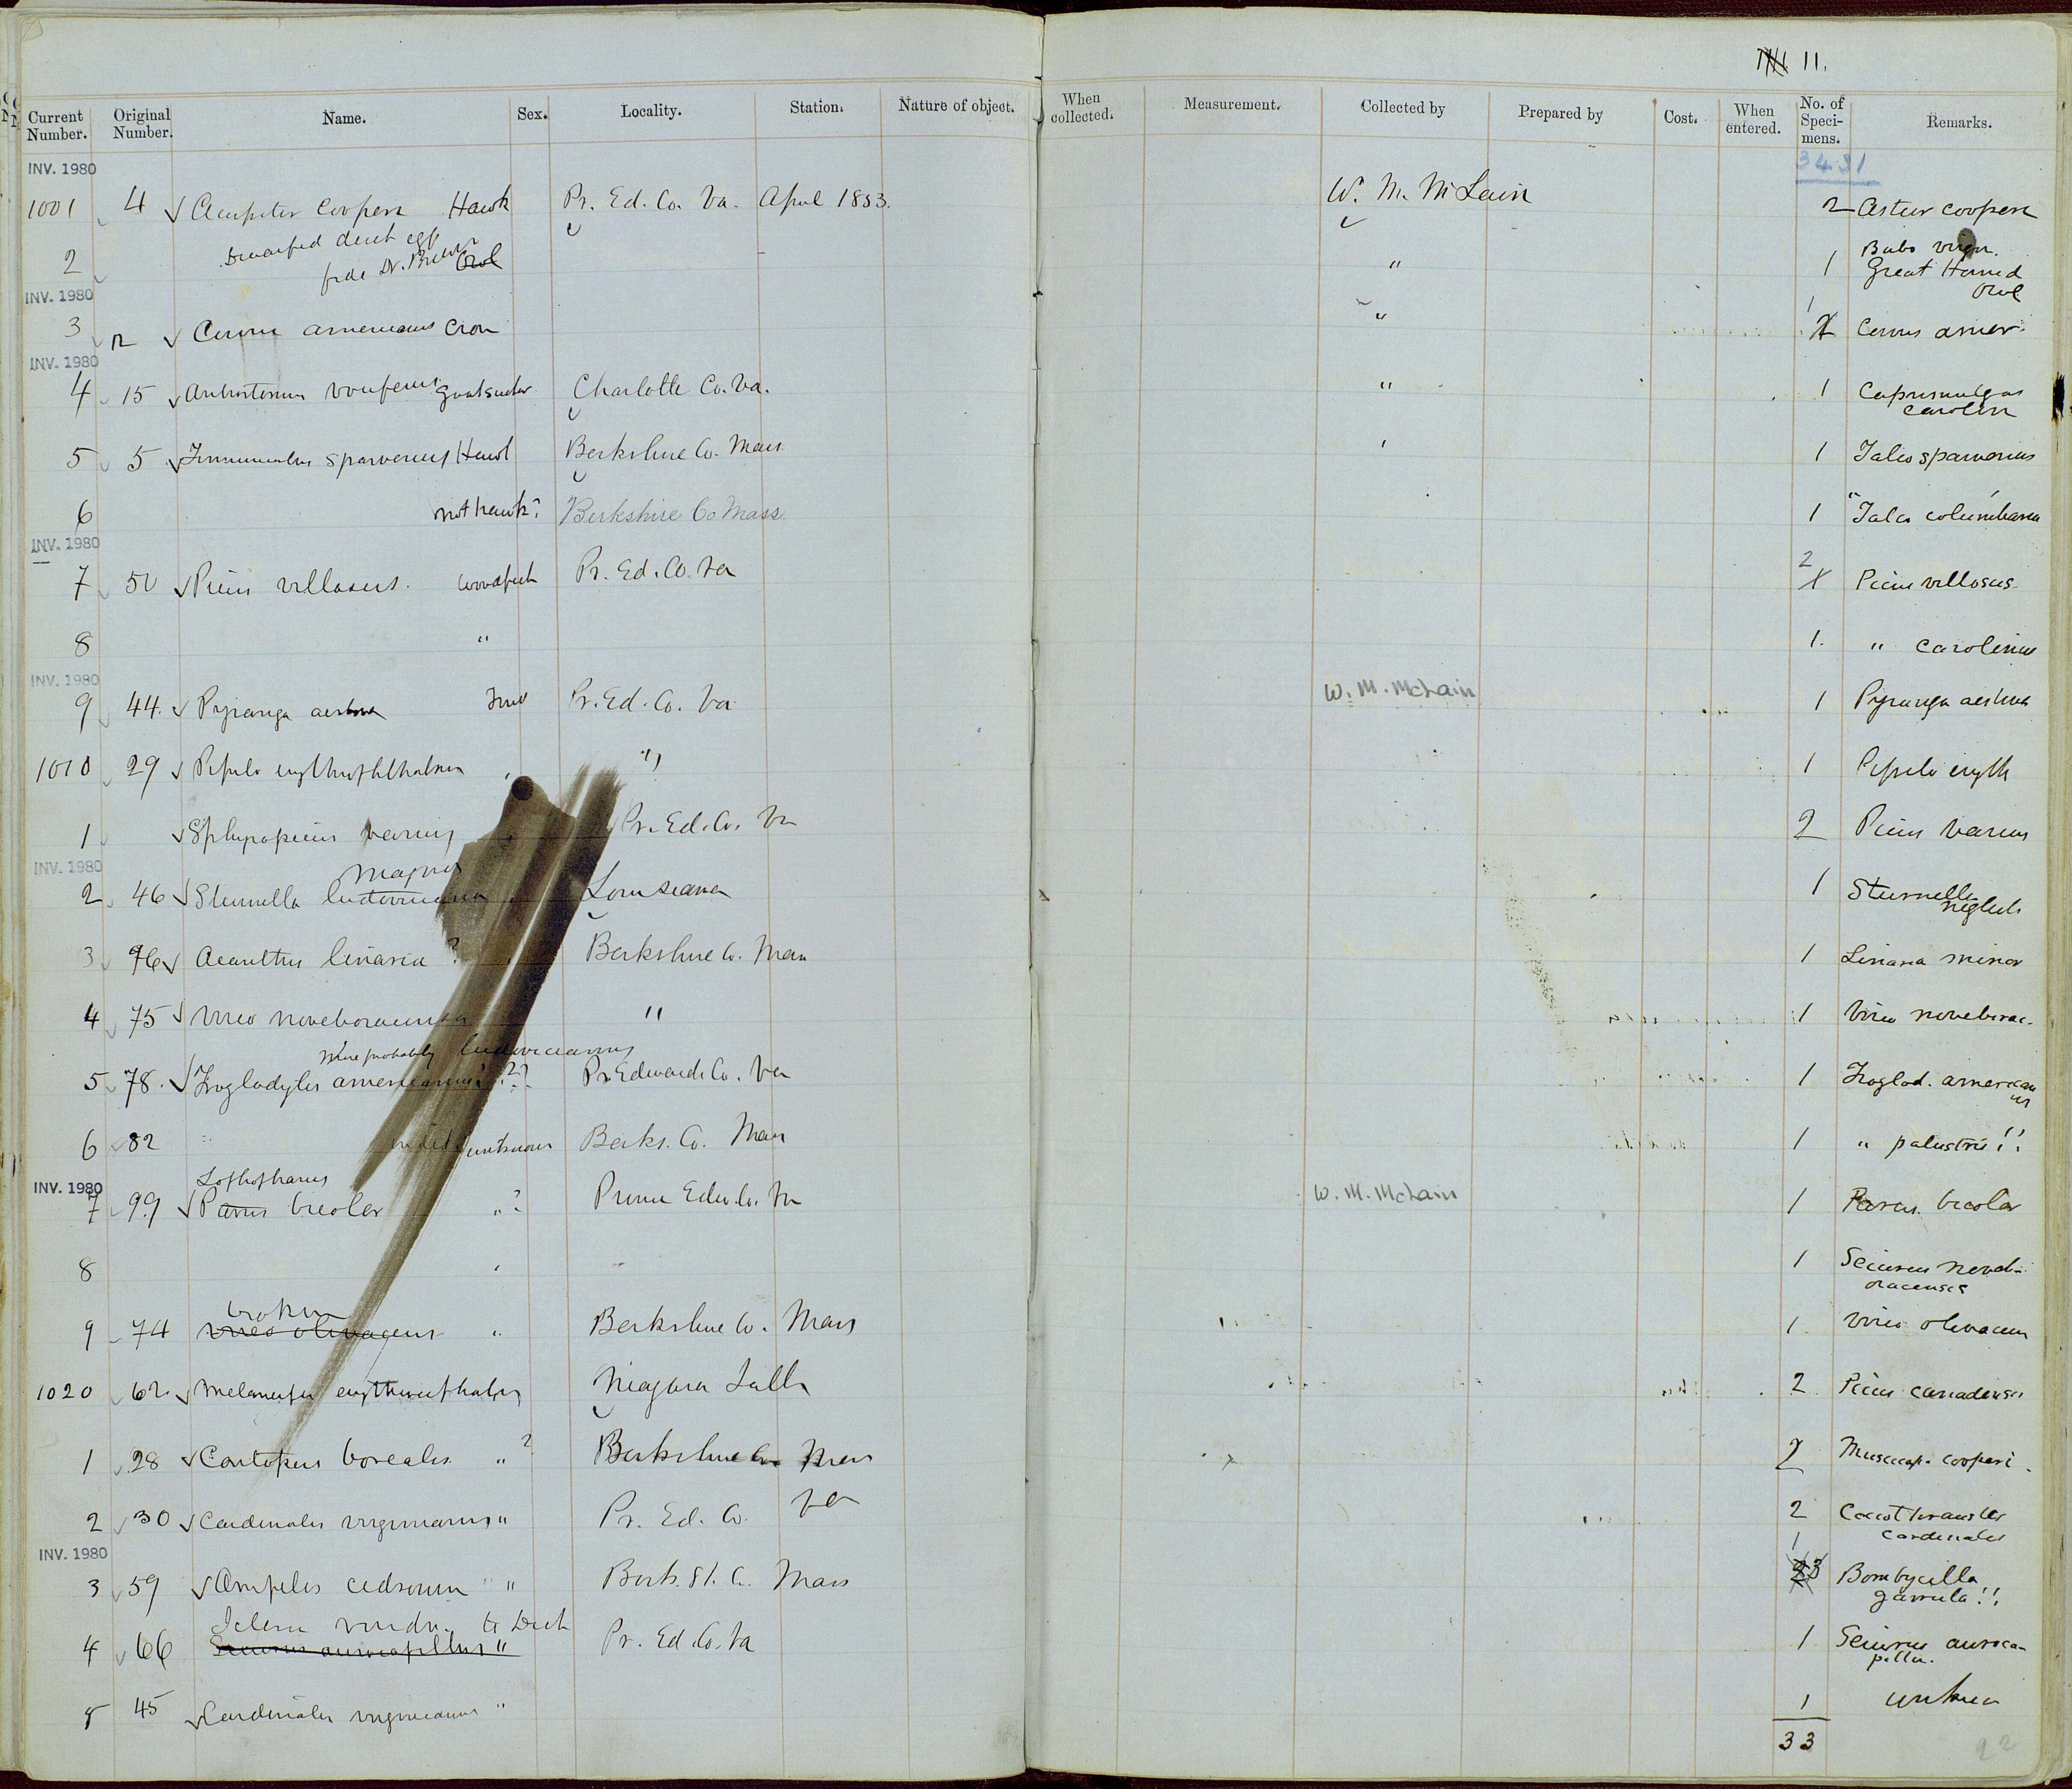 11.
Current Number. Original Number. Name. Sex. Locality. Station. Nature of object. When collected. Measurement. Collected by Prepared by Cost. When entered. No. of Speci-mens. Remarks.
INV. 1980 3431
1001 4 Accipiter cooperi Hawk Pr. Ed. Co. Va. April 1853. W. M. McLain 2 Astur cooperi
Dwarfed duck egg
fide Dr. Brewer
2 Owl " 1 Bubo virgn.
Great Horned
Owl
INV. 1980
3 12 Corvus americanus Crow " 1 Corvus amer.
INV. 1980
4 15 Antrostomus vociferus Goatsucker Charlotte Co. Va. " 1 Caprimulgus
carolin
5 5 Tinnunculus sparverius Hawk Berkshire Co. Mass 1 Falco sparverius
6 not hawk? Berkshire Co Mass 1 "Falco columbarius
INV. 1980
2
7 50 Picus villosus. woodpeck Pr. Ed. Co. Va Picus villosus
8 " 1. " carolinus
INV. 1980
9 44. Pyranga aestiva Pr. Ed. Co. Va W. M. McLain 1 Pyranga aestiva
1010 29 Pipilo erythrophthalmus " 1 Pipilo eryth
1 Sphyrapicus varius Pr. Ed. Co. Va 2 Picus varius
INV. 1980
magna
2 46 Sturnella ludoviciana Louisiana 1 Sturnella
neglecta
3 76 Acanthis linaria ? Berkshire Co. Mass 1 Linaria minor
4 75 Vireo noveboracensis " 1 Vireo noveborac.
more probably ludovicianus
5 78. Troglodytes americanus? ?? Pr Edwards Co. Va 1 Troglod. american
us
6 82 unknown Berks. Co. Mass 1 " palustris!!
Lophophanes
INV. 1980
7 99 Parus bicolor " ? Prince Edw. Co. Va W. M. McLain 1 Parus. bicolor
8 1 Seiurus noveb-
oracensis
broken
9 74 Vireo olivaceus " Berkshire Co. Mass 1. Vireo olivaceus
1020 62 Melanerpes erythrocephalus Niagara Falls 2 Picus canadensis
1 28 Contopus borealis. " ? Berkshire Co Mass 2 Muscicap. cooperi.
2 30 Cardinalis virginianus " Pr. Ed. Co. Va 2 Coccothraustes
cardinalis
INV. 1980 1
3 59 Ampelis cedrorum " Berksh. Co. Mass 23 Bombycilla
garrula!!
Icteria virdis. to Dech
4 66 Seiurus aurocapillus " Pr. Ed. Co. Va 1 Seiurus auroca-
pillus.
5 45 Cardinalis virginianus " 1 unknown
33
22